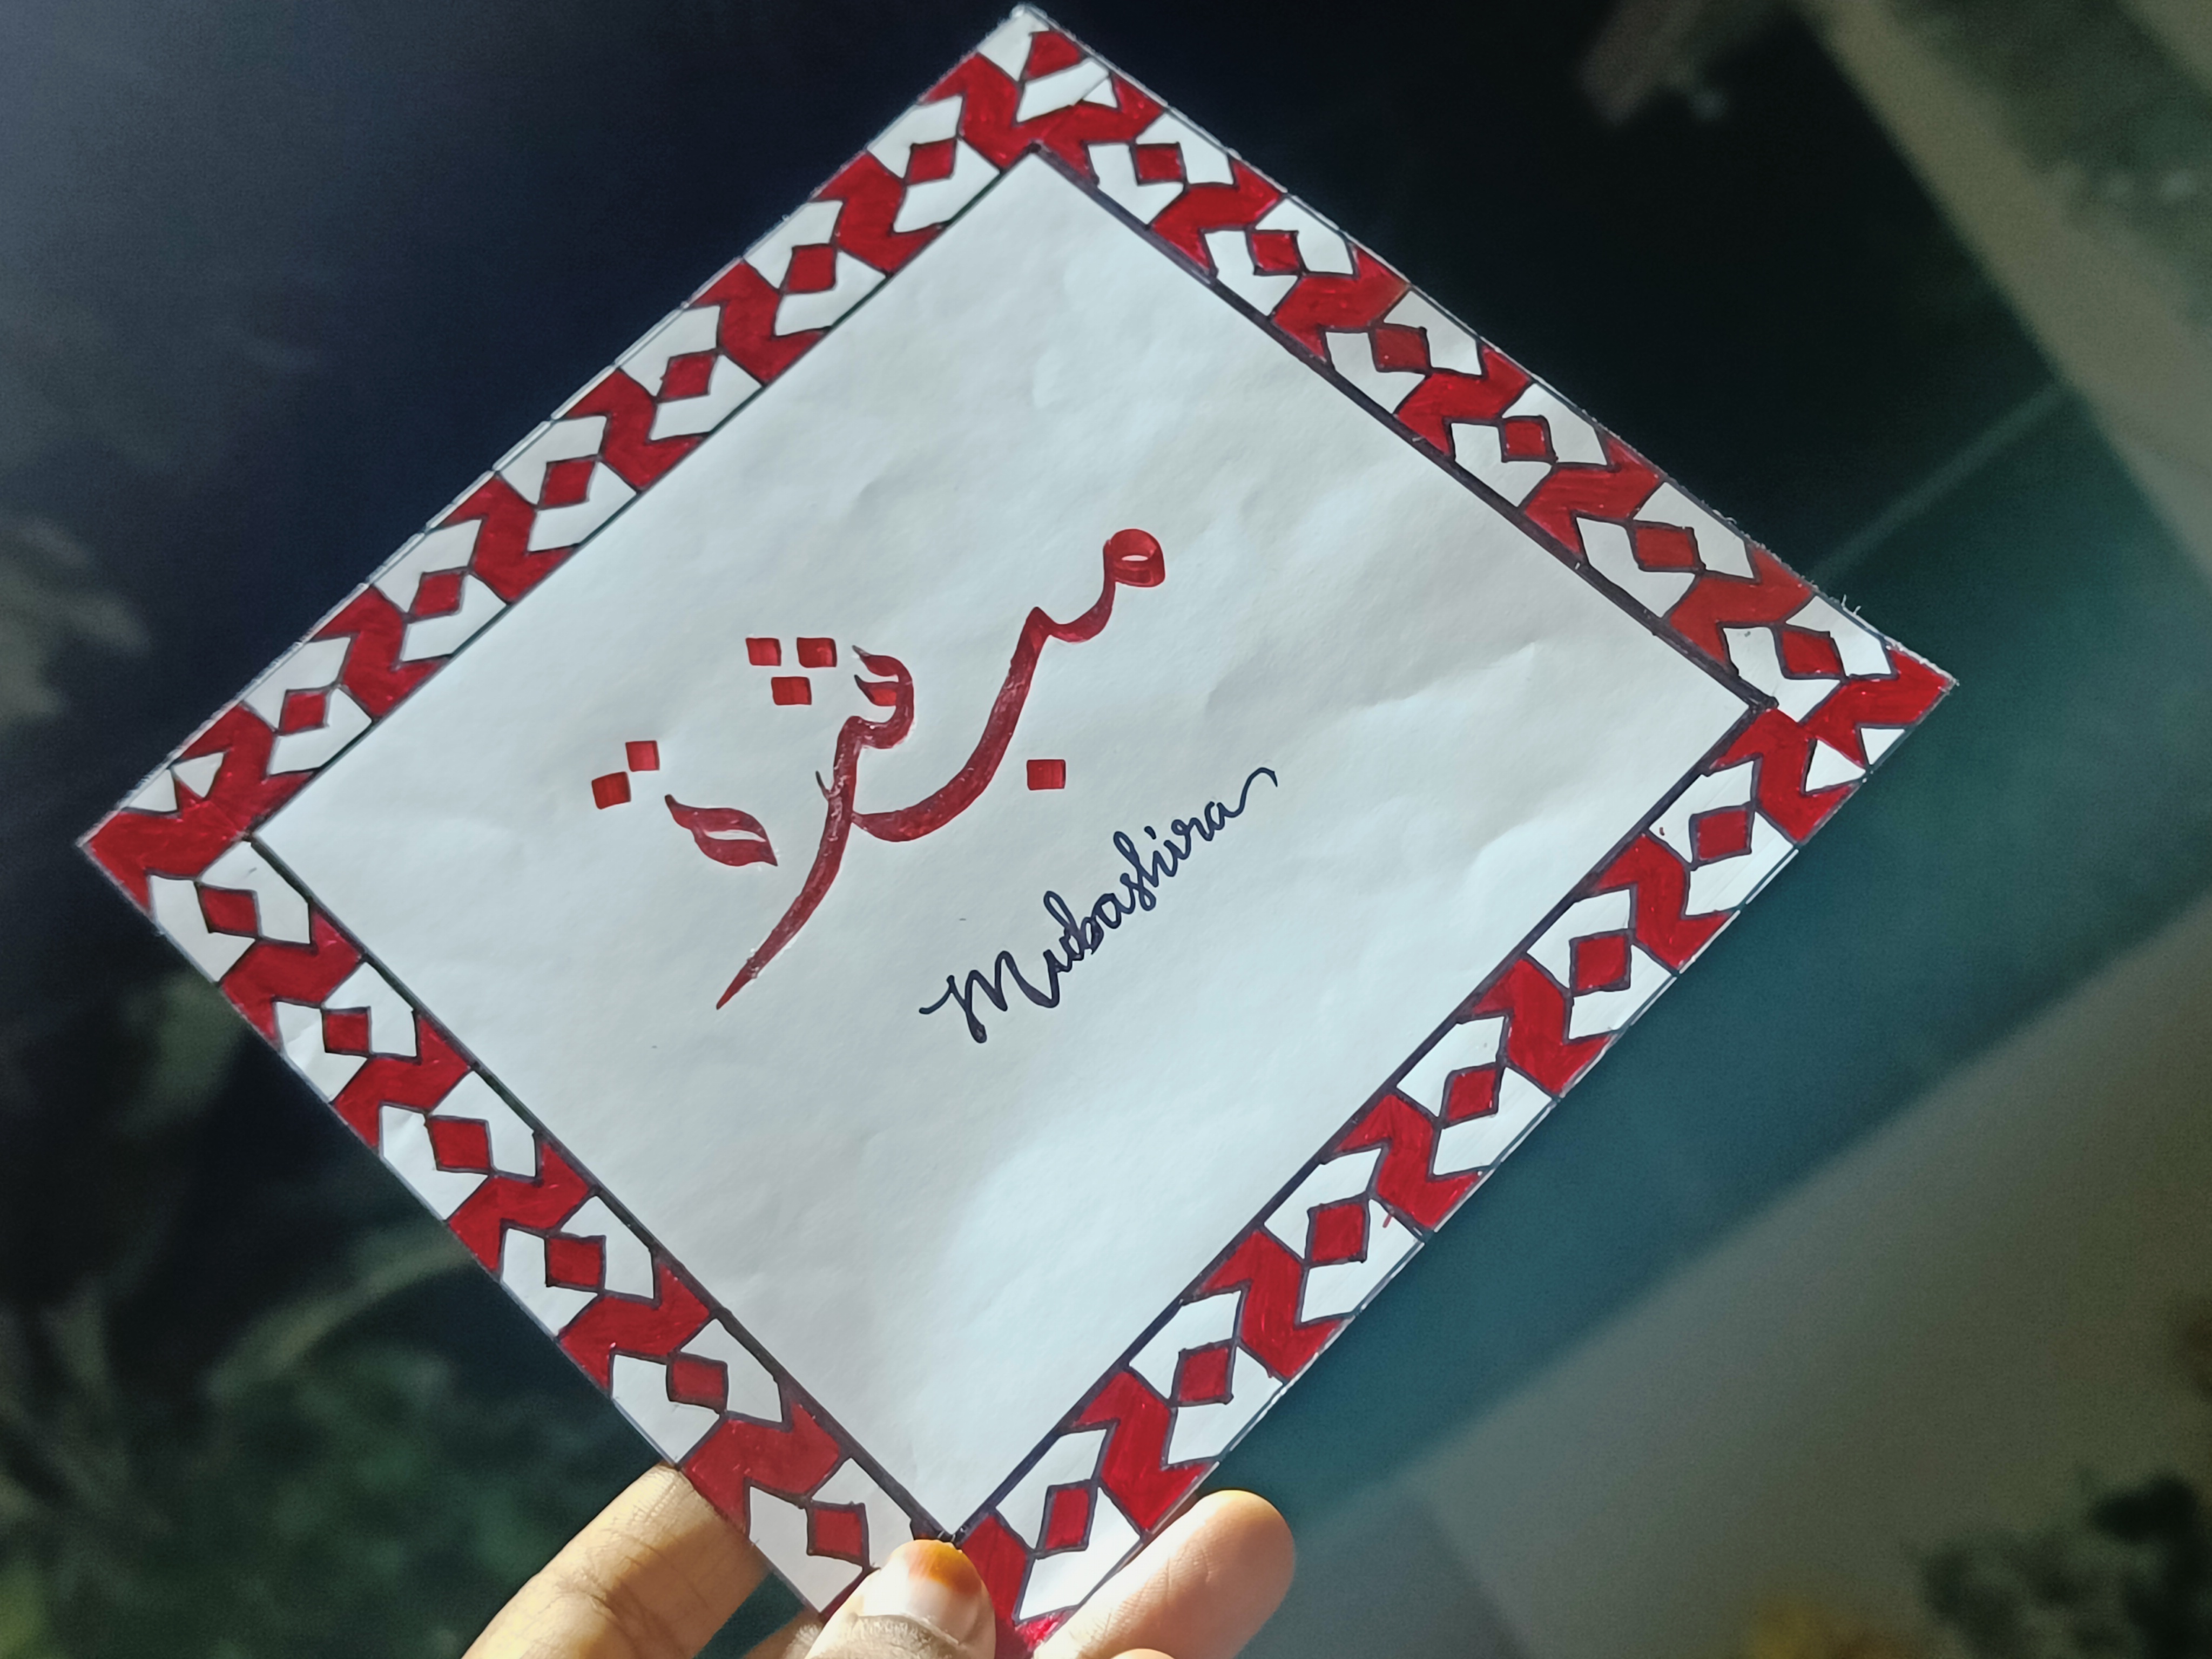 مبشرة
Mubashira